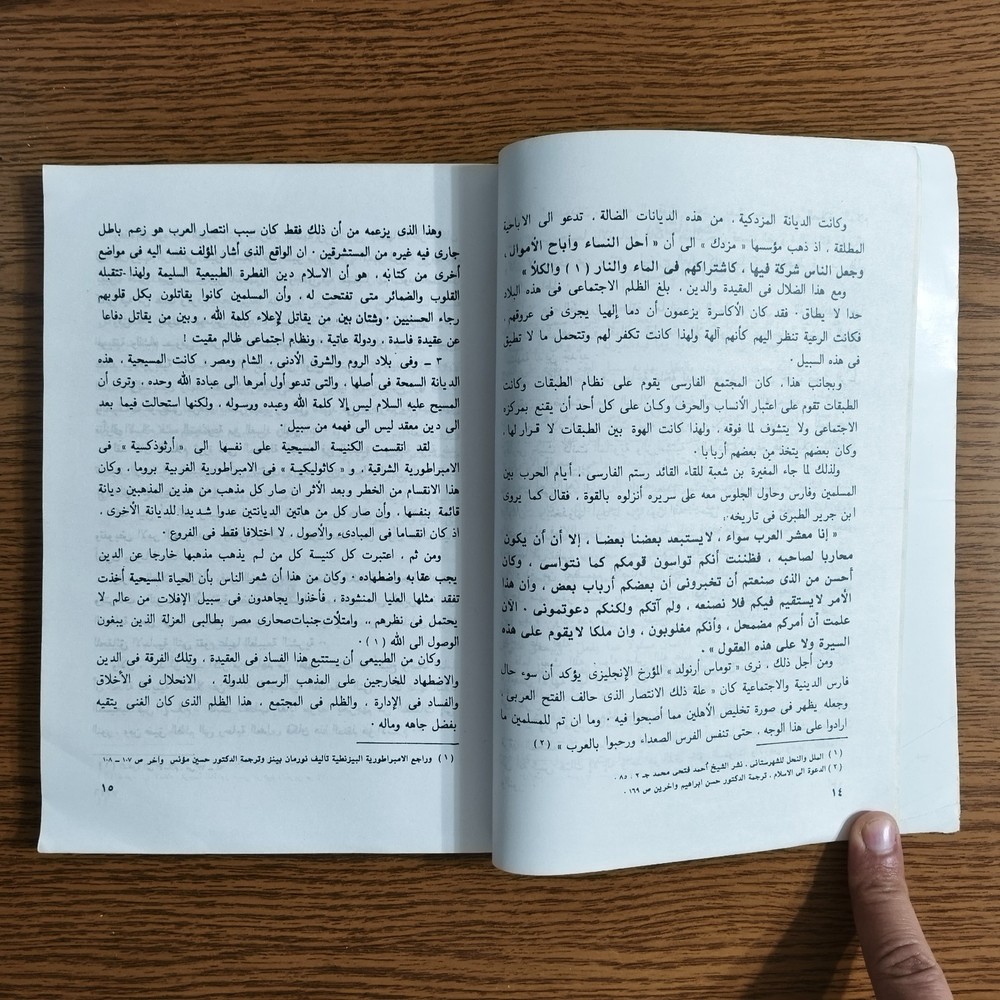 وكانت الديانة المزدكية ، من هذه الديانات الضالة ، تدعو الى الاباحية
المطلقة ، اذ ذهب مؤسسها « مزدك » الى أن « أحل النساء وأباح الأموال ،
وجعل الناس شركة فيها ، كاشتراكهم فى الماء والنار (١) والكلأ »
ومع هذا الضلال فى العقيدة والدين ، بلغ الظلم الاجتماعى فى هذه البلاد
حدا لا يطاق ٠ فقد كان الأكاسرة يزعمون أن دما إلهيا يجرى فى عروقهم ٠
فكانت الرعية تنظر اليهم كأنهم آلهة ولهذا كانت تكفر لهم وتتحمل ما لا تطيق
فى هذه السبيل ٠
وبجانب هذا ، كان المجتمع الفارسى يقوم على نظام الطبقات وكانت
الطبقات تقوم على اعتبار الأنساب والحرف وكان على كل أحد أن يقنع بمركزه
الاجتماعى ولا يتشوف لما فوقه ، ولهذا كانت الهوة بين الطبقات لا قرار لها ،
وكان بعضهم يتخذ من بعضهم أربابا ٠
ولذلك لما جاء المغيرة بن شعبة للقاء القائد رستم الفارسى ، أيام الحرب بين
المسلمين وفارس وحاول الجلوس معه على سريره أنزلوه بالقوة ، فقال كما يروى
ابن جرير الطبرى فى تاريخه ٠
« إنا معشر العرب سواء ، لايستبعد بعضنا بعضا ، إلا أن أن يكون
محاربا لصاحبه ، فظننت أنكم تواسون قومكم كما نتواسى ، وكان
أحسن من الذى صنعتم أن تخبرونى أن بعضكم أرباب بعض ، وأن هذا
الأمر لايستقيم فيكم فلا نصنعه ، ولم آتكم ولكنكم دعوتمونى ٠ الآن
علمت أن أمركم مضمحل ، وأنكم مغلوبون ، وان ملكا لايقوم على هذه
السيرة ولا على هذه العقول » ٠
ومن أجل ذلك ، نرى « توماس أرنولد » المؤرخ الإنجليزى يؤكد أن سوء حال
فارس الدينية والاجتماعية كان « علة ذلك الانتصار الذى حالف الفتح العربى ،
وجعله يظهر فى صورة تخليص الأهلين مما أصبحوا فيه ٠ وما ان تم للمسلمين ما
ارادوا على هذا الوجه ، حتى تنفس الفرس الصعداء ورحبوا بالعرب » (٢)
(١) الملل والنحل للشهرستانى ، نشر الشيخ أحمد فتحى محمد جـ ٢ : ٨٥ ٠
(٢) الدعوة الى الاسلام ، ترجمة الدكتور حسن ابراهيم واخرين ص ١٦٩ ٠
١٤
وهذا الذى يزعمه من أن ذلك فقط كان سبب انتصار العرب هو زعم باطل
جارى فيه غيره من المستشرقين ٠ ان الواقع الذى أشار المؤلف نفسه اليه فى مواضع
أخرى من كتابه ، هو أن الاسلام دين الفطرة الطبيعية السليمة ولهذا تتقبله
القلوب والضمائر متى تفتحت له ، وأن المسلمين كانوا يقاتلون بكل قلوبهم
رجاء الحسنيين ٠ وشتان بين من يقاتل لإعلاء كلمة الله ، وبين من يقاتل دفاعا
عن عقيدة فاسدة ، ودولة عاتية ، ونظام اجتماعى ظالم مقيت !
٣ ــ وفى بلاد الروم والشرق الأدنى ، الشام ومصر ، كانت المسيحية ، هذه
الديانة السمحة فى أصلها ، والتى تدعو أول أمرها الى عبادة الله وحده ، وترى أن
المسيح عليه السلام ليس إلا كلمة الله وعبده ورسوله ، ولكنها استحالت فيما بعد
الى دين معقد ليس الى فهمه من سبيل ٠
لقد انقسمت الكنيسة المسيحية على نفسها الى « أرثوذكسية » فى
الامبراطورية الشرقية ، و « كاثوليكية » فى الامبراطورية الغربية بروما ، وكان
هذا الانقسام من الخطر وبعد الأثر ان صار كل مذهب من هذين المذهبين ديانة
قائمة بنفسها ، وأن صار كل من هاتين الديانتين عدوا شديدا للديانة الأخرى ،
اذ كان انقساما فى المبادىء والأصول ، لا اختلافا فقط فى الفروع ٠
ومن ثم ، اعتبرت كل كنيسة كل من لم يذهب مذهبها خارجا عن الدين
يجب عقابه واضطهاده ٠ وكان من هذا أن شعر الناس بأن الحياة المسيحية أخذت
تفقد مثلها العليا المنشودة ، فأخذوا يجاهدون فى سبيل الإفلات من عالم لا
يحتمل فى نظرهم .. وامتلأت جنبات صحارى مصر بطالبى العزلة الذين يبغون
الوصول الى الله (١) ٠
وكان من الطبيعى أن يستتبع هذا الفساد فى العقيدة ، وتلك الفرقة فى الدين
والاضطهاد للخارجين على المذهب الرسمى للدولة ، الانحلال فى الأخلاق
والفساد فى الإدارة ، والظلم فى المجتمع ، هذا الظلم الذى كان الغنى يتقيه
بفضل جاهه وماله ٠
(١) وراجع الامبراطورية البيزنطية تأليف نورمان بينز وترجمة الدكتور حسين مؤنس وآخر ص ١٠٧ ــ ١٠٨
١٥